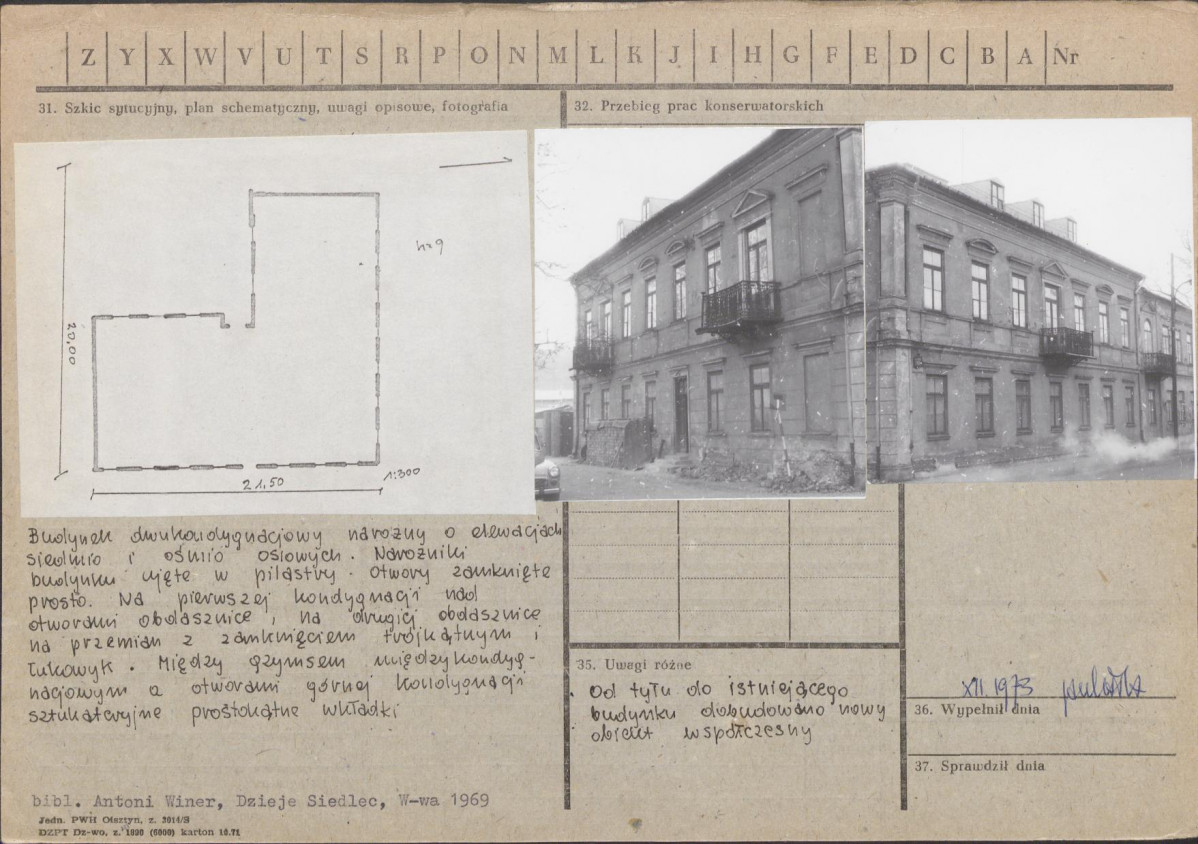 Z Y X W V U T S R P O N M L K J I H G F E D C B A Nr
31. Szkic sytucyjny, plan schematyczny, uwagi opisowe, fotografia
32. Przebieg prac konserwatorskich
h=9
20,00
21,50
1:300
Budynek dwukondygnacjowy narożny o elewacjach
siedmio i ośmio osiowych. Narożniki
budynku ujęte w pilastry. Otwory zamknięte
prosto. Na pierwszej kondygnacji nad
otworami obdasznice, na drugiej obdasznice
na przemian z zamknięciem trójkątnym i
łukowyk. Między gzymsem międzykondyg-
nacjowym a otworami górnej kondygnacji
sztukateryjne prostokątne wkładki
bibl. Antoni Winer, Dzieje Siedlec, W-wa 1969
Jedn. PWH Olsztyn, z. 2014/S
DZPT Dz-wo, z. 1890 (6000) karton 10.71
35. Uwagi różne
Od tyłu do istniejącego
budynku dobudowano nowy
obiekt współczesny
XII.1973
36. Wypełnił dnia
37. Sprawdził dnia